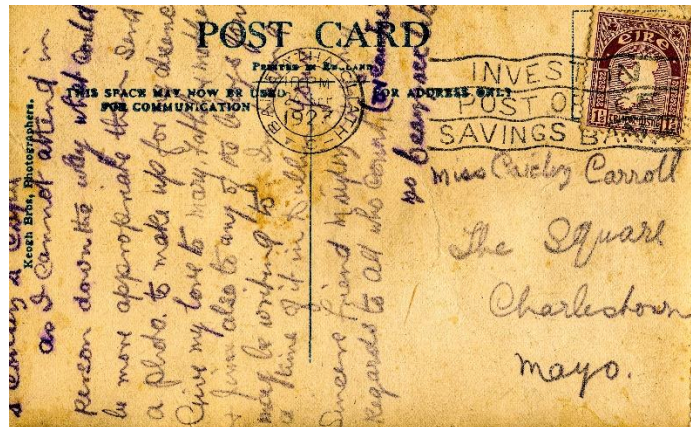 POST CARD
PRINTED IN ENGLAND
THIS SPACE MAY NOW BE USED
FOR COMMUNICATION
FOR ADDRESS ONLY
Keogh Bros, Photographers.
BAILE ÁTHA CLIATH
1923
INVEST IN
POST OFFICE
SAVINGS BANK
éire
1½ 1½
Miss Carroll
The Square
Charlestown
Mayo.
as I cannot attend in
person down the way what could
be more appropriate than send
a photo. to make up for absence
Give my love to Mary, Father, Mother
& Jim also to any of the boys you
may be writing to
a time of it in
Sincere friend
regards to all who